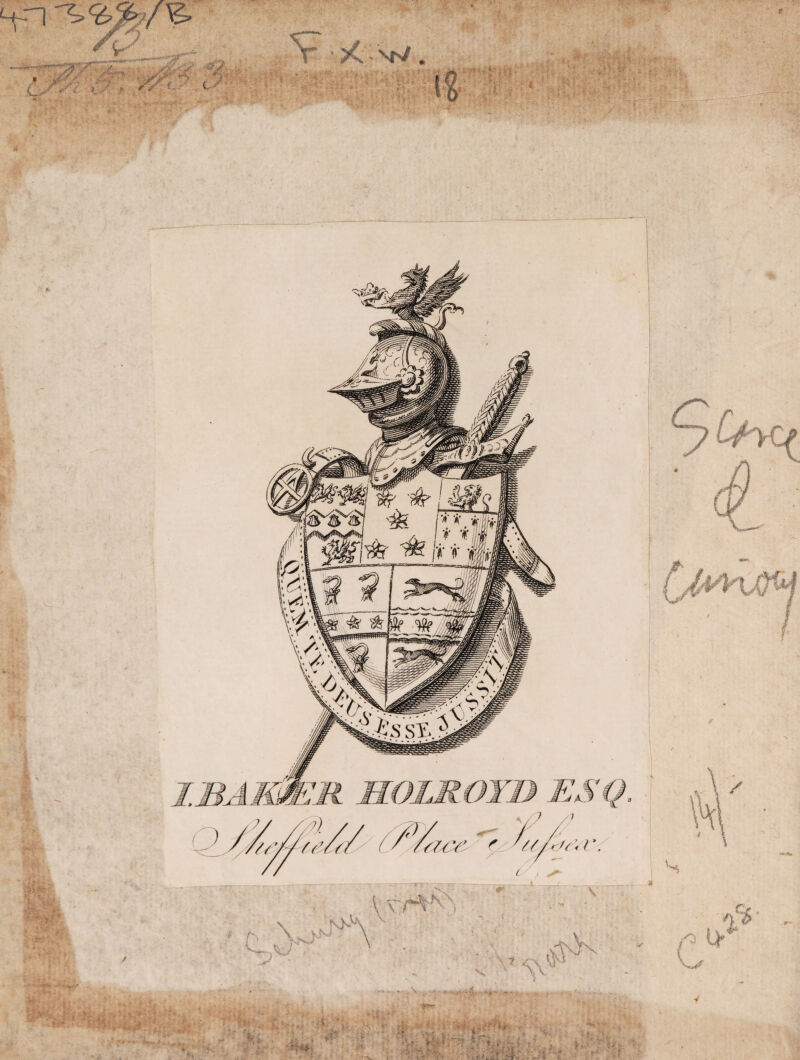 47388/B
F. X. W.
18
QUEM TE DEUS ESSE JUSSIT
I. BAKER HOLROYD ESQ.
Sheffield Place Suſsex.
Scarce
&
Curious
14/-
C 428.